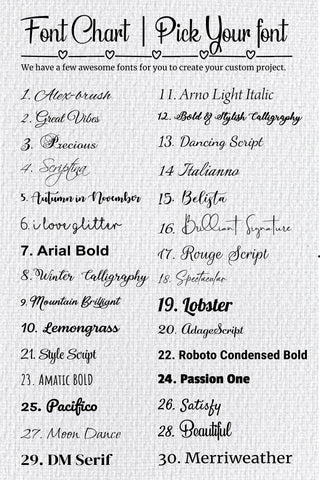 Font Chart | Pick Your font
We have a few awesome fonts for you to create your custom project.
1. Alex-brush
2. Great Vibes
3. Precious
4. Scriptina
5. Autumn in November
6. i love glitter
7. Arial Bold
8. Winter Calligraphy
9. Mountain Brilliant
10. Lemongrass
21. Style Script
23. AMATIC BOLD
25. Pacifico
27. Moon Dance
29. DM Serif
11. Arno Light Italic
12. Bold & Stylish Calligraphy
13. Dancing Script
14 Italianno
15. Belista
16. Brilliant Signature
17. Rouge Script
18. Spectacular
19. Lobster
20. AdageScript
22. Roboto Condensed Bold
24. Passion One
26. Satisfy
28. Beautiful
30. Merriweather